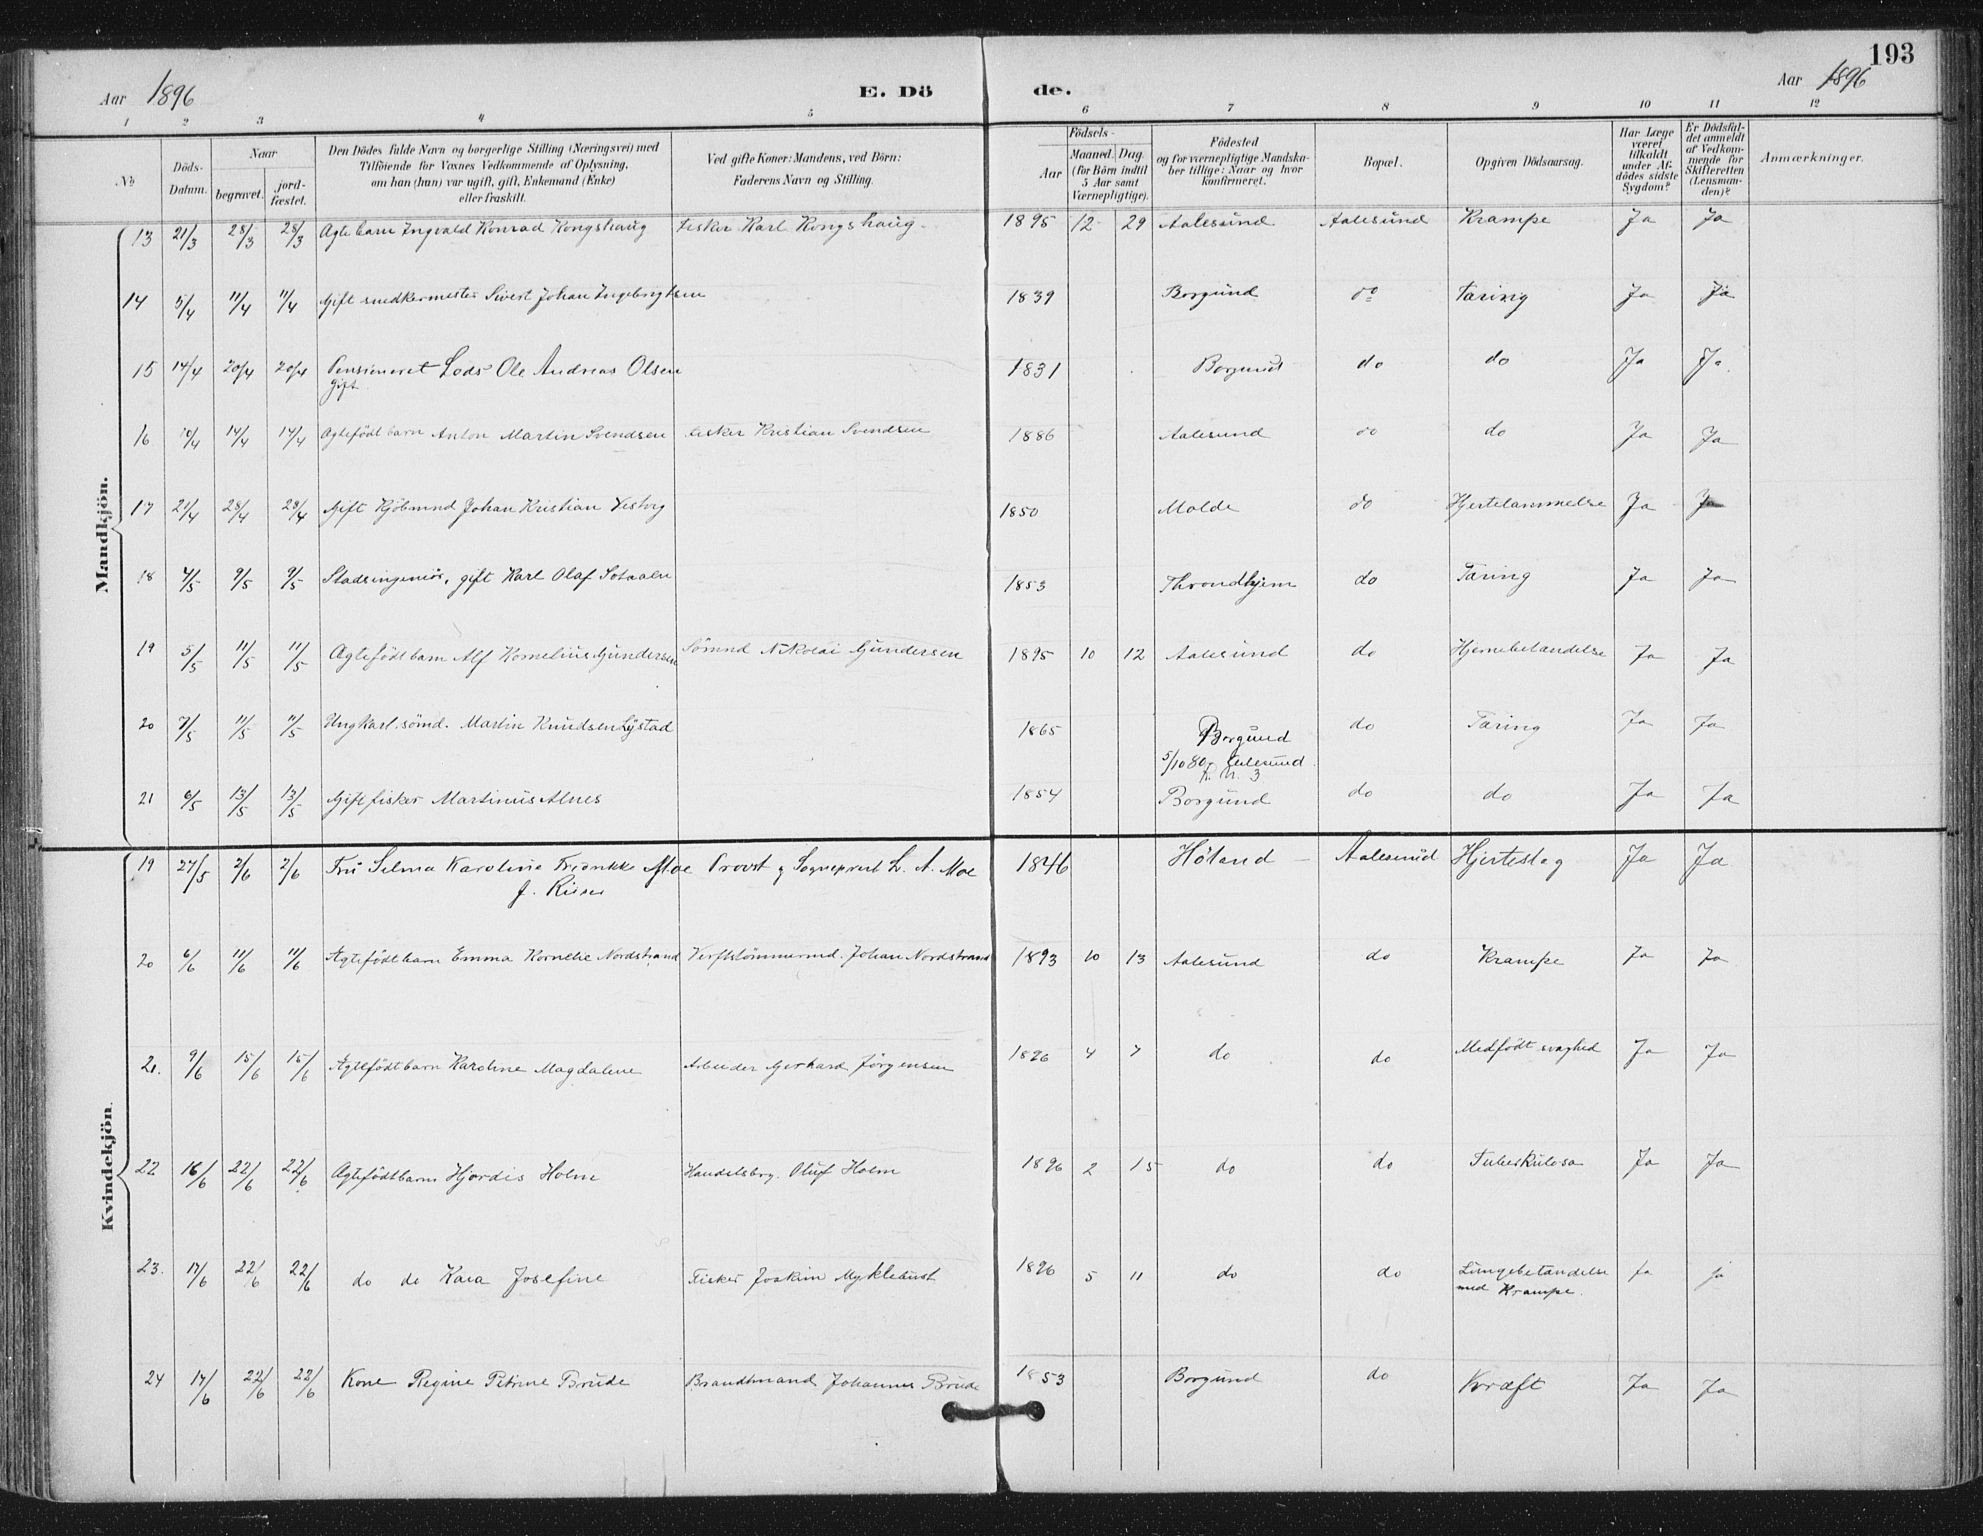 193
Aar 1896 E. Dö de. Aar 1896
1 2 3 4 5 6 7 8 9 10 11 12
No
Döds-
Datum.
Naar
begravet.
jord-
fæstet.
Den Dödes fulde Navn og borgerlige Stilling (Næringsvei) med
Tilföiende for Voxnes Vedkommende af Oplysning,
om han (hun) var ugift, gift, Enkemand (Enke)
eller fraskilt.
Ved gifte Koner: Mandens, ved Börn:
Faderens Navn og Stilling.
Födsels-
Aar
Maaned. Dag.
(for Börn indtil
5 Aar samt
Værnepligtige).
Födested
og for værnepligtige Mandska-
ber tillige: Naar og hvor
konfirmeret.
Bopæl.
Opgiven Dödsaarsag.
Har Læge
været
tilkaldt
under Af-
dödes sidste
Sygdom?
Er Dödsfal-
det anmeldt
af Vedkom-
mende for
Skifteretten
(Lensman-
den)?
Anmærkninger.
Mandkjön.
13 21/3 28/3 28/3 Ægtebarn Ingvald Konrad Kongshaug fisker Karl Kongshaug 1895 12 29 Aalesund Aalesund Krampe Ja Ja
14 5/4 11/4 11/4 Gift snedkermester Sivert Johan Ingebrigtsen 1839 Borgund do Tæring Ja Ja
15 14/4 20/4 20/4 Pensioneret Lods Ole Andreas Olsen 1831 Borgund do do Ja Ja
gift
16 10/4 14/4 14/4 Ægtefödt barn Anton Martin Svendsen fisker Kristian Svendsen 1886 Aalesund do do Ja Ja
17 21/4 28/4 28/4 Gift Kjöbmnd Johan Kristian Vestvig 1850 Molde do Hjertelammelse Ja Ja
18 4/5 9/5 9/5 Stadsingeniör, gift Karl Olaf 1853 Throndhjem do Tæring Ja Ja
19 5/5 11/5 11/5 Ægtefödt barn Alf Kornelius Gundersen Sömnd Nikolai Gundersen 1895 10 12 Aalesund do Hjernebetændelse Ja Ja
20 7/5 11/5 11/5 Ungkarl, sömd. Martin Knudsen Lystad 1865 Borgund do Tæring Ja Ja
5/10 80 Aalesund
3
21 6/5 13/5 13/5 Gift fisker Martinus Alnes 1854 Borgund do do Ja Ja
Kvindekjön.
19 27/5 2/6 2/6 Fru Selma Karoline Fredrikke Moe Provst og Sogneprest L. A. Moe 1846 Höland Aalesund Hjerteslag Ja Ja
f. Riise
20 6/6 11/6 11/6 Ægtefödt barn Emma Kornelie Nordstrand Verftstömmermd. Johan Nordstrand 1893 10 13 Aalesund do Krampe Ja Ja
21. 9/6 15/6 15/6 Ægtefödt barn Karoline Magdalene Arbeider Gerhard Jörgensen 1896 4 7 do do Medfödt svaghed Ja Ja
22 16/6 22/6 22/6 Ægtefödt barn Hjördis Holm Handelsbrg. Oluf Holm 1896 2 15 do do Tuberkulose Ja Ja
23. 17/6 22/6 22/6 do do Kaia Josefine Fisker Joakim Myklebust 1896 5 11 do do Lungebetændelse ja ja
med Krampe.
24 17/6 22/6 22/6 Kone Regine Petrine Brude Brandtmand Johannes Brude 1853 Borgund do Kræft Ja Ja